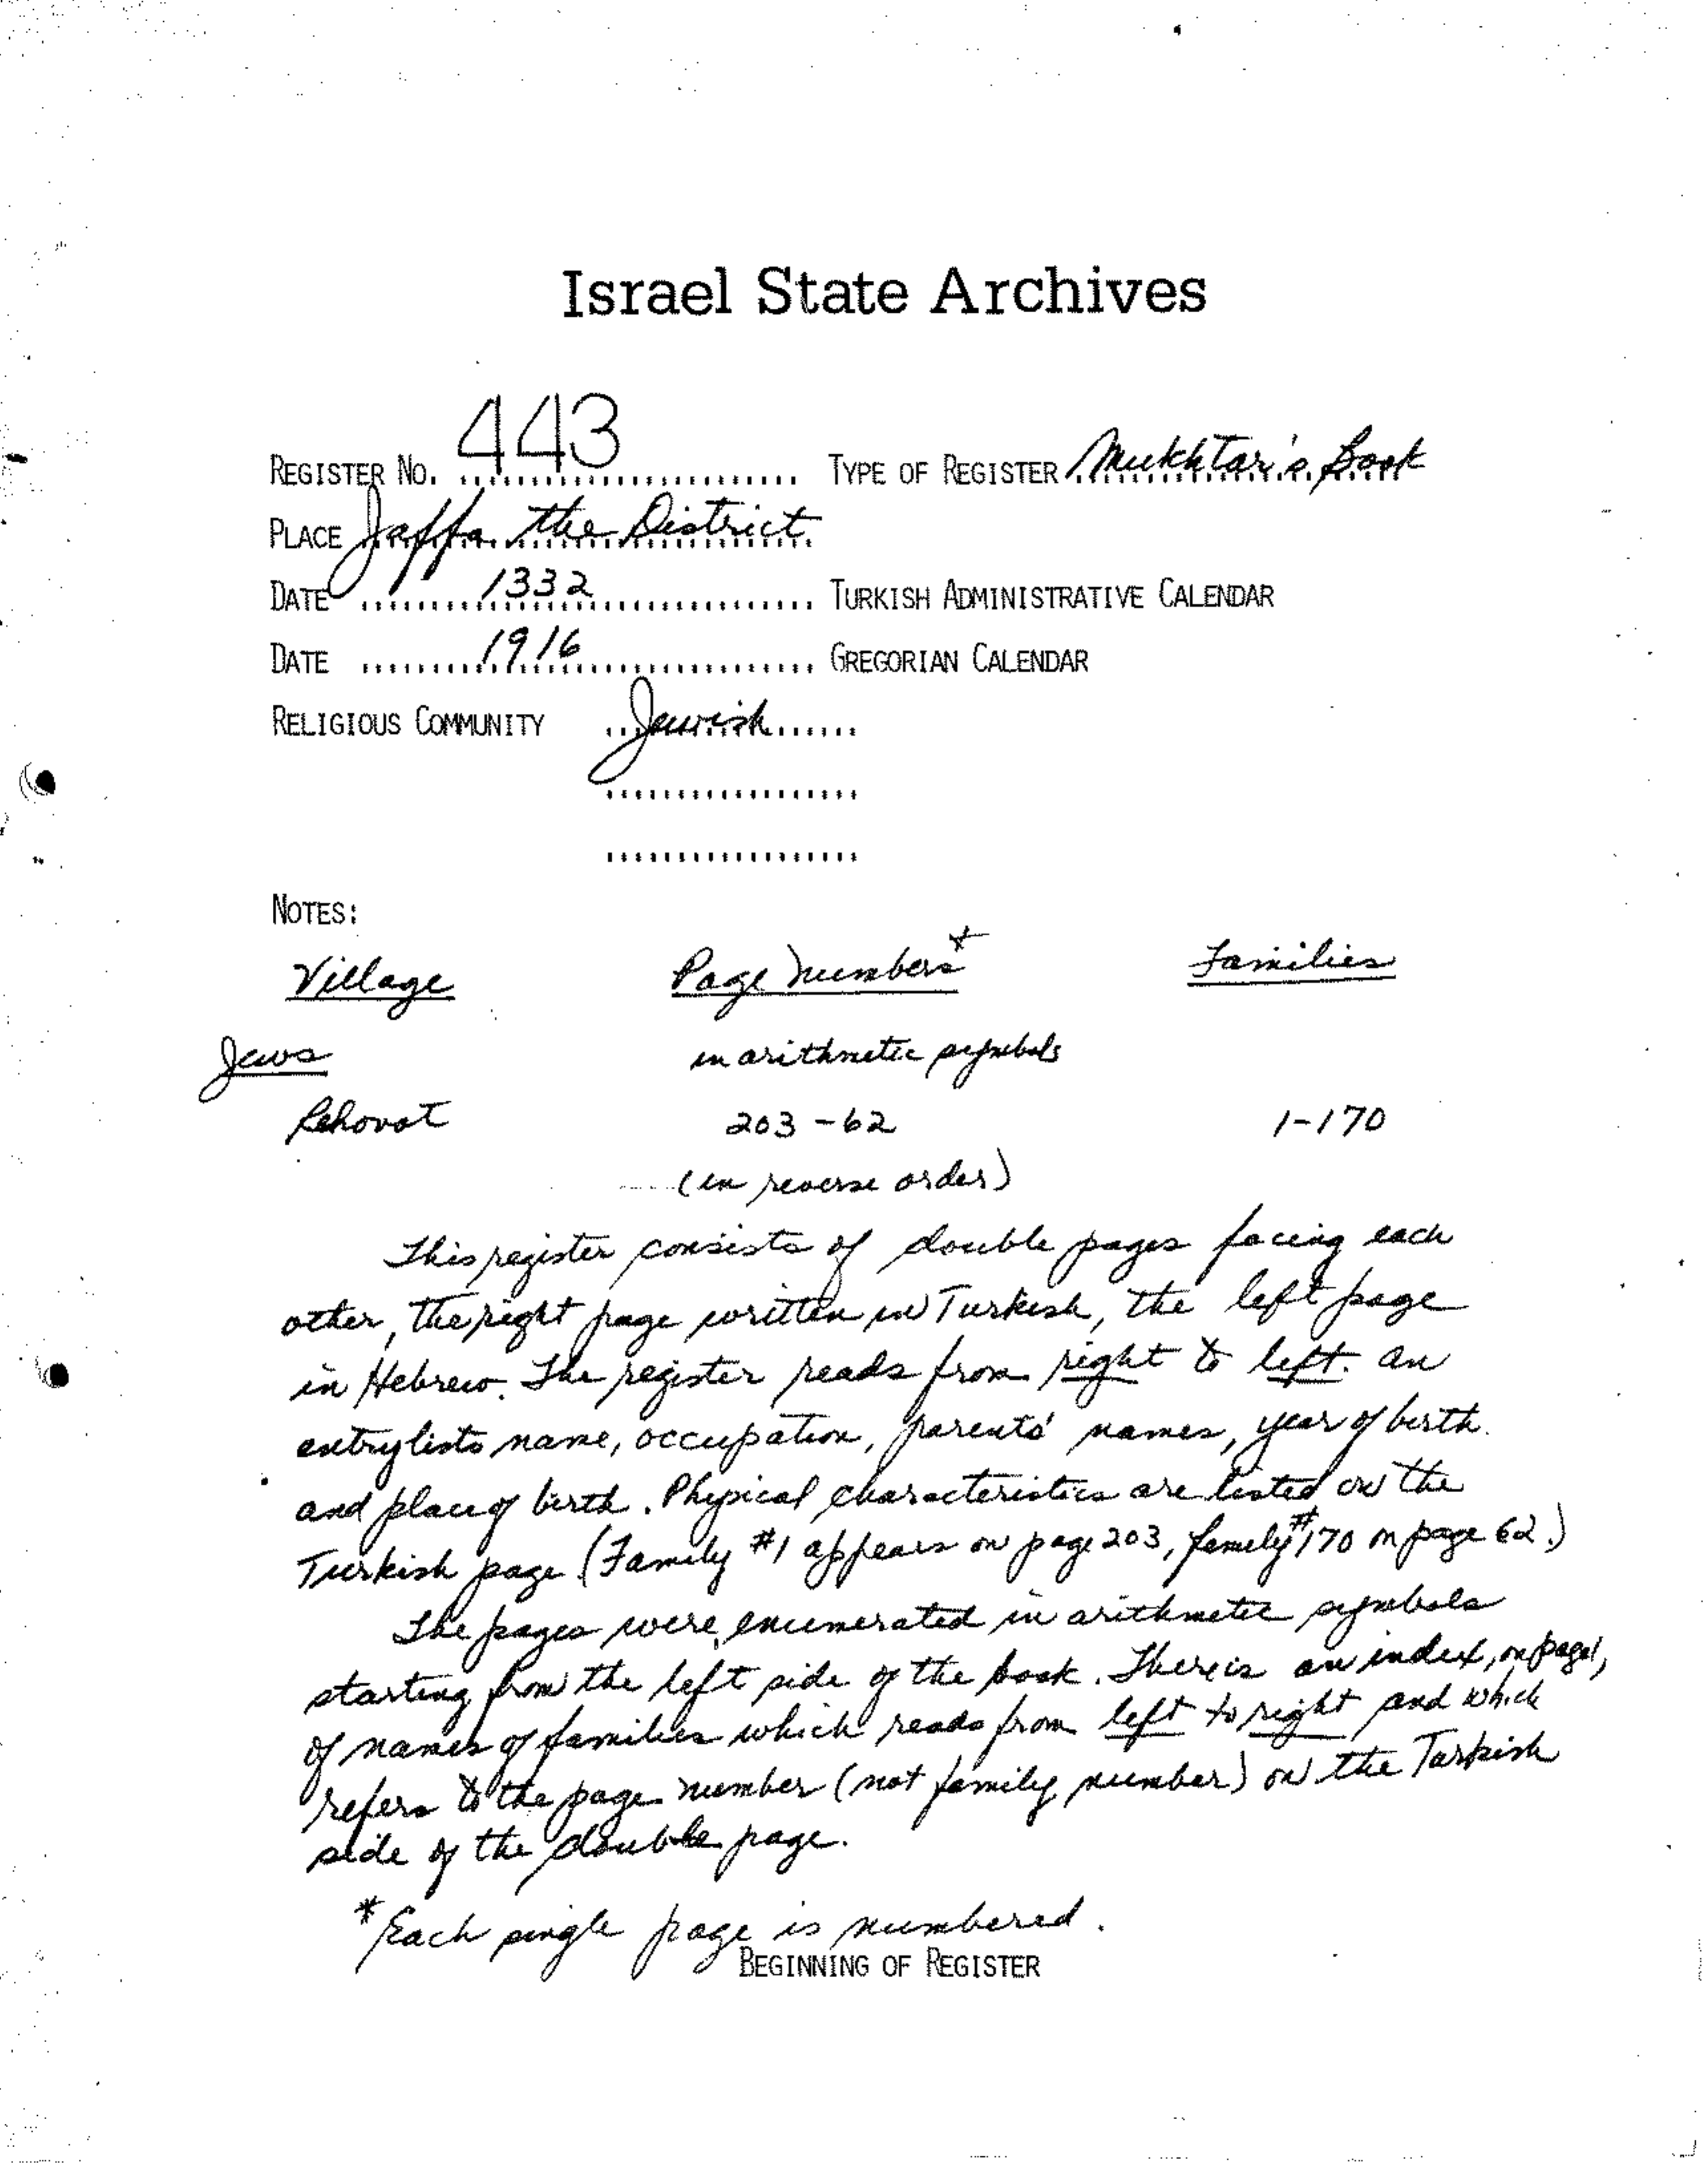 Israel State Archives
REGISTER NO. 443 TYPE OF REGISTER Mukhtar's Book
PLACE Jaffa the District
DATE 1332 TURKISH ADMINISTRATIVE CALENDAR
DATE 1916 GREGORIAN CALENDAR
RELIGIOUS COMMUNITY Jewish
NOTES:
Village Page Numbers* Families
Jews in arithmetic symbols
Rehovot 203-62 1-170
(in reverse order)
This register consists of double pages facing each
other, the right page written in Turkish, the left page
in Hebrew. The register reads from right to left. An
entry lists name, occupation, parents' names, year of birth
and place of birth. Physical characteristics are listed on the
Turkish page (Family #1 appears on page 203, family #170 on page 62.)
The pages were enumerated in arithmetic symbols
starting from the left side of the book. There is an index, on page 1,
of names of families which reads from left to right and which
refers to the page number (not family number) on the Turkish
side of the double page.
*Each single page is numbered.
BEGINNING OF REGISTER